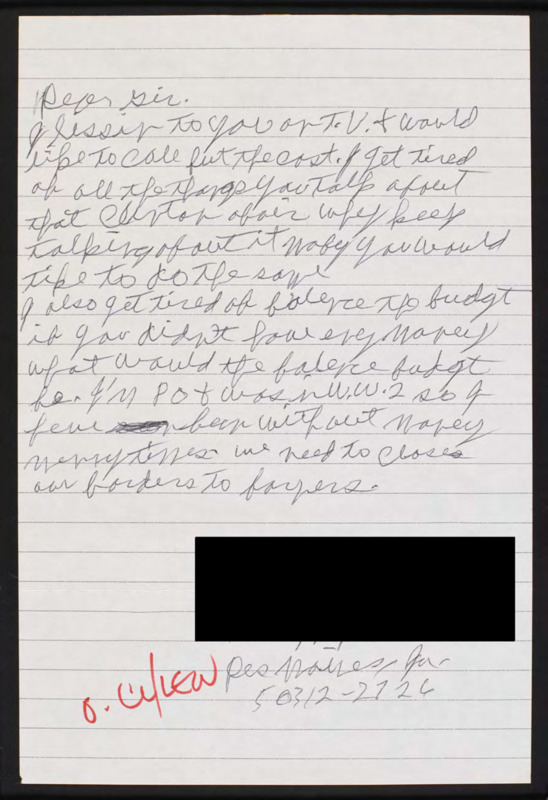 Dear Sir.
I lissin to you on T.V. & would
like to call but the cost. I get tired
of all the things you talk about
that Clinton afair why keep
talking about it maby you would
like to do the same
I also get tired of balence the budgt
if you didn't have eny money
what would the balence budgt
be. I'm 80 & was in W.W.2 so I
have been without money
meny times. we need to close
our borders to
Des Moines, Ia.
50312-2726